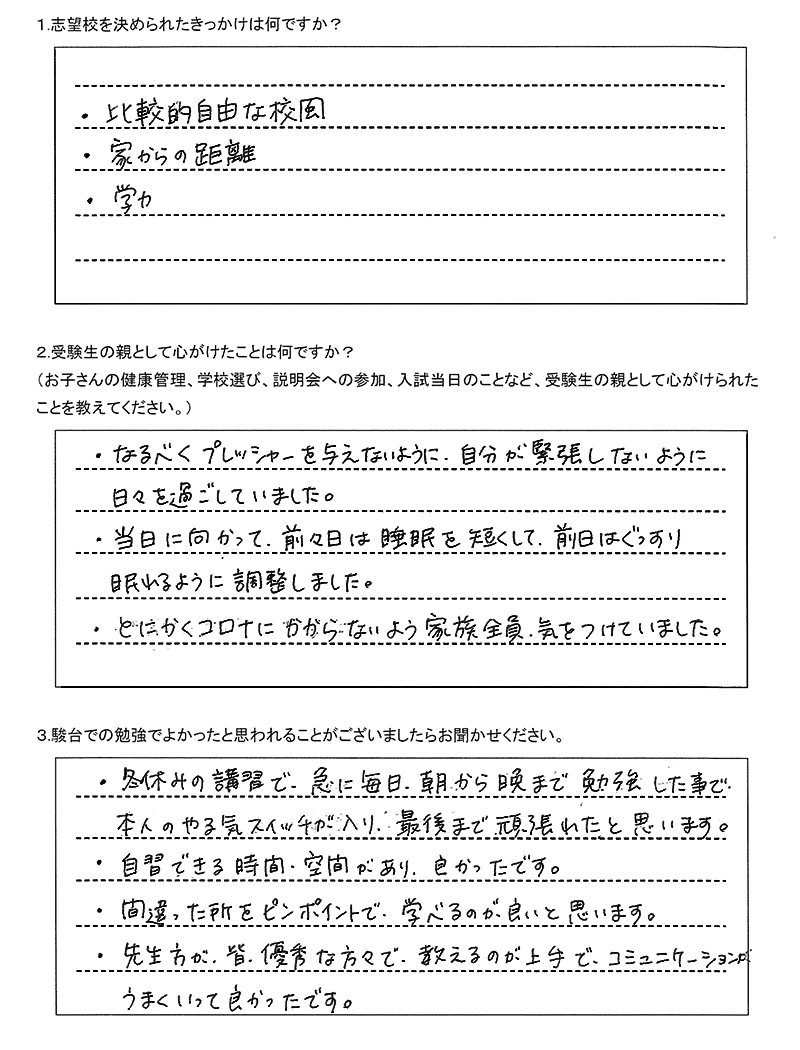 1.志望校を決められたきっかけは何ですか？
・比較的自由な校風
・家からの距離
・学力
2.受験生の親として心がけたことは何ですか？
（お子さんの健康管理、学校選び、説明会への参加、入試当日のことなど、受験生の親として心がけられた
ことを教えてください。）
・なるべくプレッシャーを与えないように、自分が緊張しないように
日々を過ごしていました。
・当日に向かって、前々日は睡眠を短くして、前日はぐっすり
眠れるように調整しました。
・とにかくコロナにかからないよう家族全員、気をつけていました。
3.駿台での勉強でよかったと思われることがございましたらお聞かせください。
・冬休みの講習で、急に毎日、朝から晩まで勉強した事で、
本人のやる気スイッチが入り、最後まで頑張れたと思います。
・自習できる時間・空間があり、良かったです。
・間違った所をピンポイントで、学べるのが良いと思います。
・先生方が、皆、優秀な方々で、教えるのが上手で、コミュニケーションが
うまくいって良かったです。